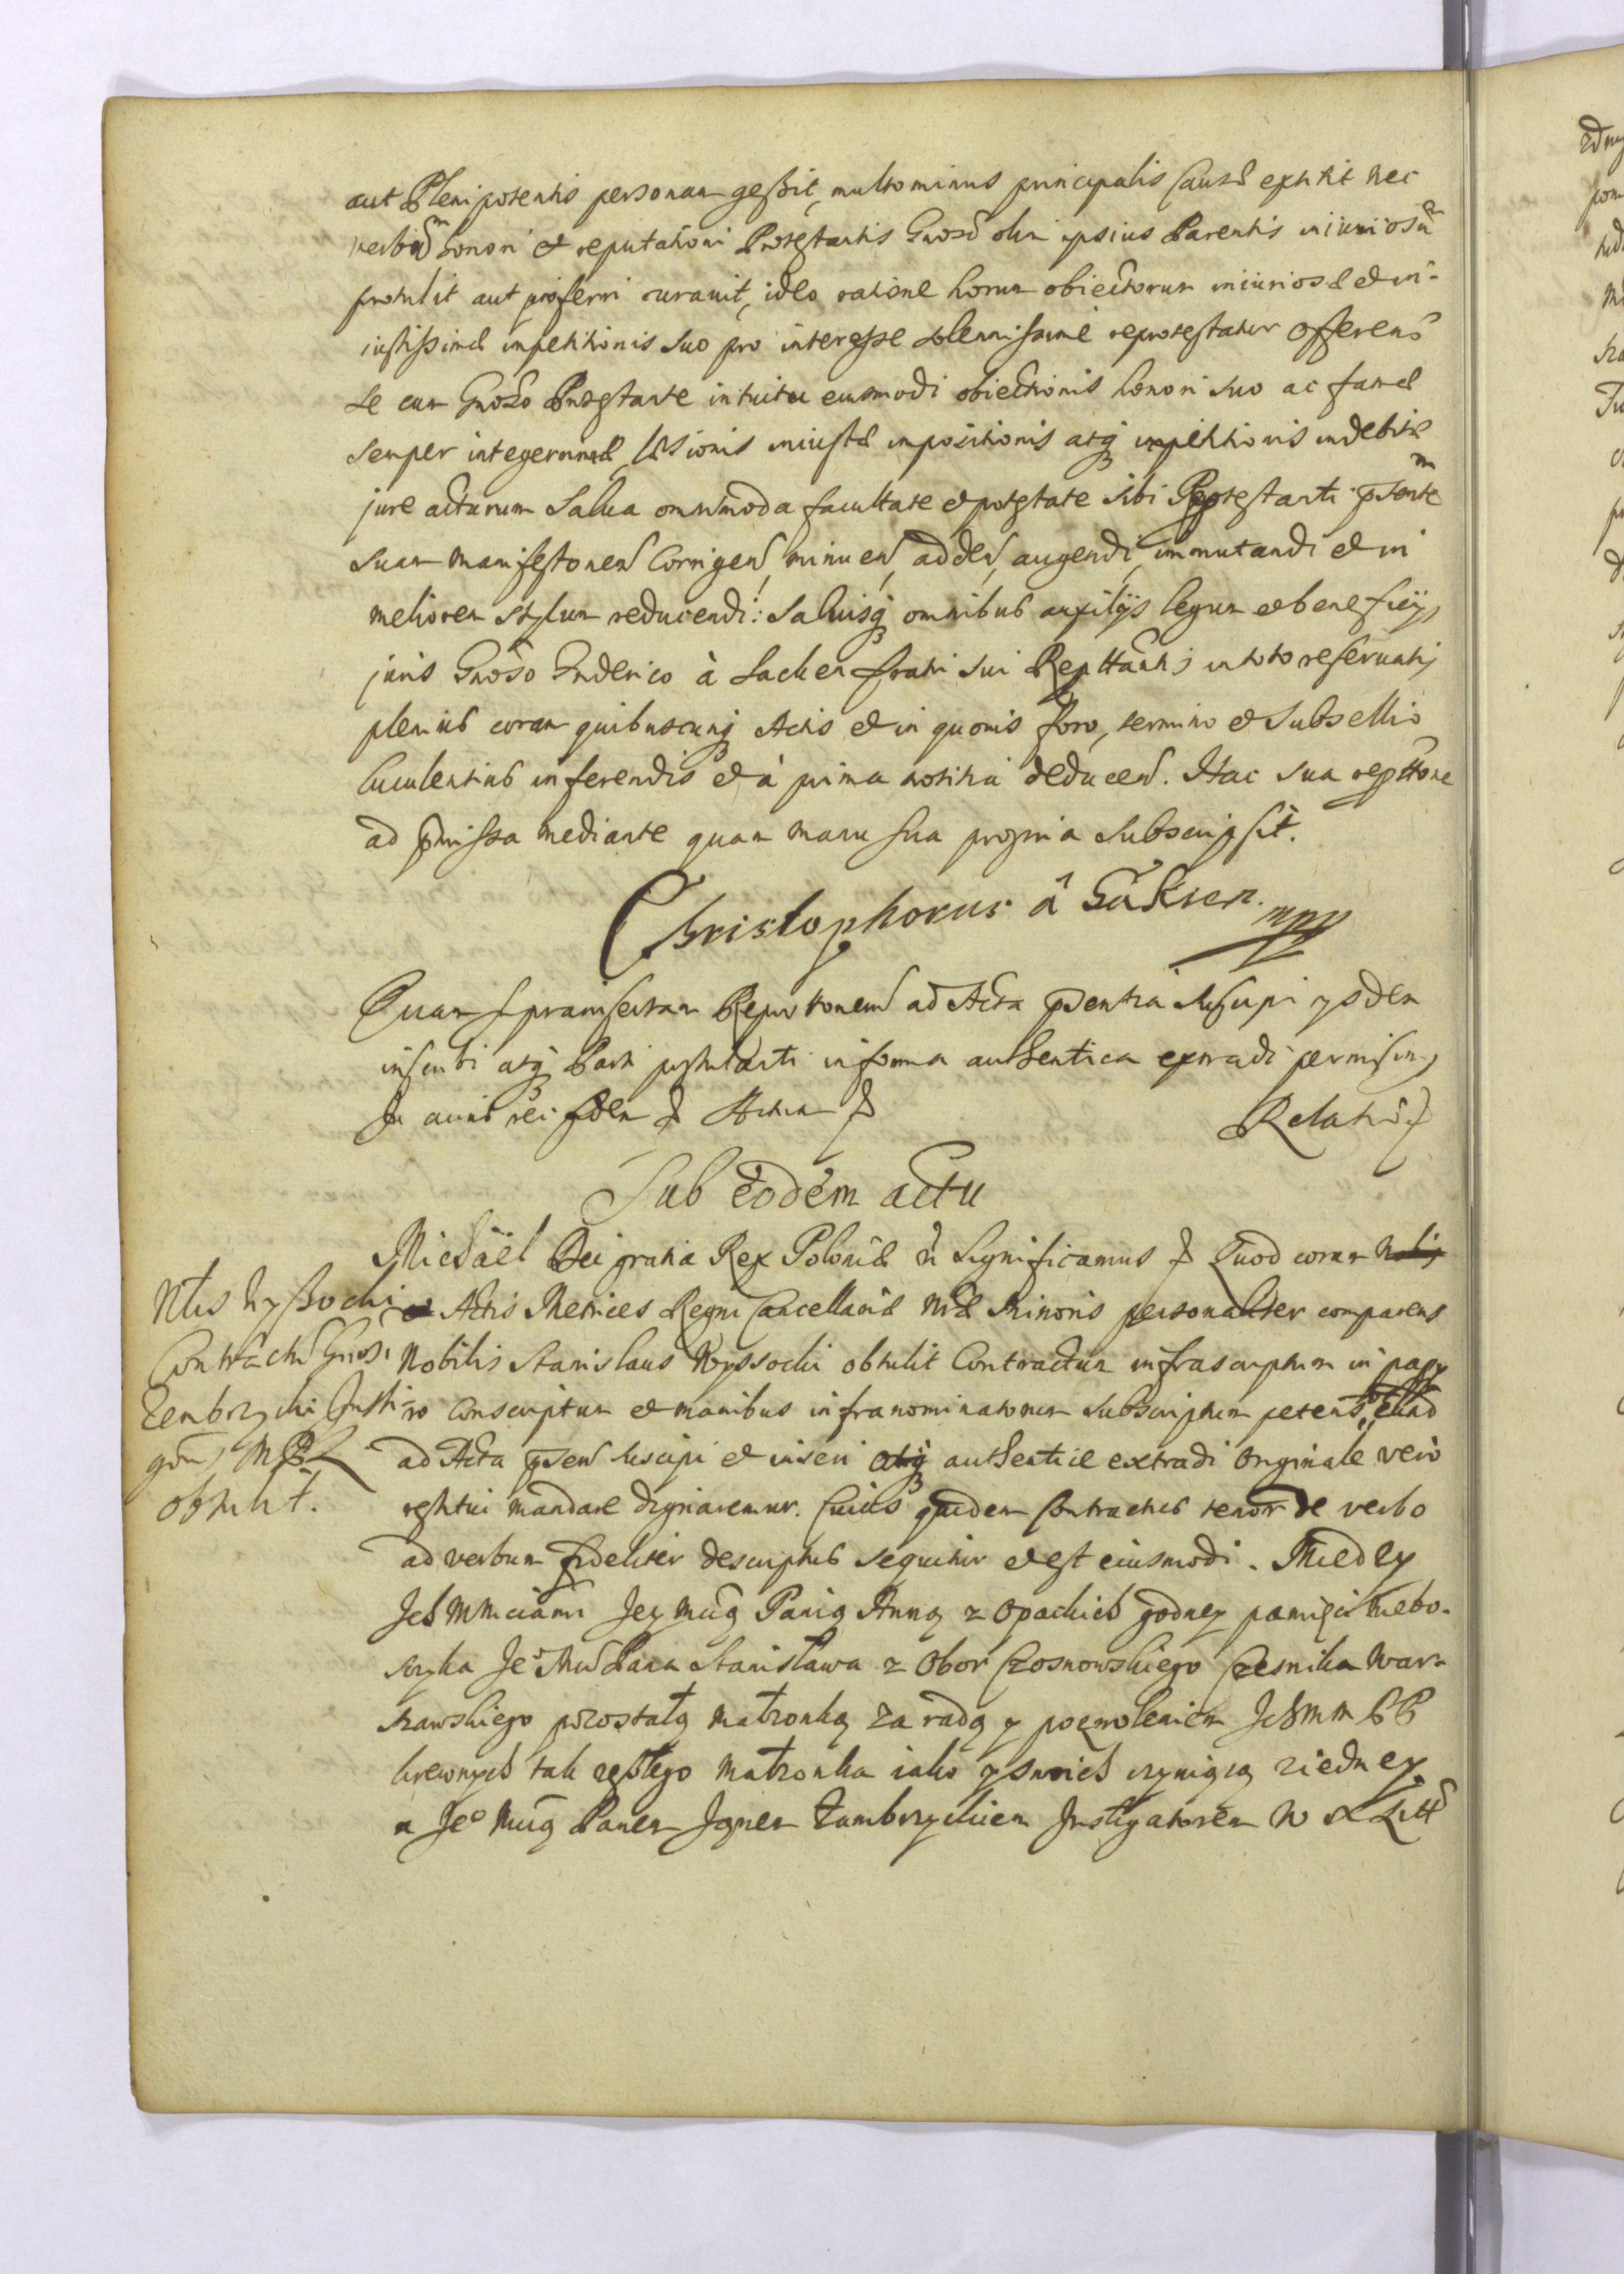 aut Plenipotentis personam gessit, multo minus principalis Causæ extitit nec
verbũ honori et reputationi Protestantis Gnosd olim ipsius Parentis iniuriosũ
protulit aut proferri curauit, ideo ratione horum obiectorum iniuriosæ et in-
iustissimæ impetitionis suo pro interesse solennissimè reprotestatur offerens
se cum Gnoso Protestante intuitu eiusmodi obiectionis honori suo ac famæ
semper integerrimæ læsionis iniustæ impositionis atq impetitionis indebitæ
jure acturum Salua omnimoda facultate et potestate sibi Reprotestanti pñsentem
suam manifestonem Corrigen, minuen, adden, augendi, immutandi et in
meliorem stylum reducendi: Saluisq omnibus auxilijs legum et beneficijs
juris Gnoso Enderico à Sacken fratri sui Repttantis in toto reseruatis
plenius coram quibuscunq Actis et in quouis foro, termino et Subsellio
luculentius inferendis et à prima notitia deducen. Hac sua repttone
ad pmissa mediante quam manu sua propria Subscripsit.
Christophorus â Sâcken mpp
Quam praeinsertam Reprottonem ad Acta pñsentia suscipi ysdem
inscribi atq Parti postulanti in forma authentica extradi permisimus
In cuius rei fidem Actum
Relatio
Sub eodem actu
Michaël Dei gratia Rex Poloniæ Significamus Quod coram Nobis
et Actis Metrices Regni Cancellariæ Nræ Minoris personaliter comparens
Nobilis Stanislaus Wyssocki obtulit Contractum infrascriptum in papy
ro Conscriptum et manibus infranominatorum subscriptum petens, illud
ad Acta pñsen suscipi et inseri atq authenticè extradi Originale verò
restitui mandare dignaremur. Cuius quidem Contractus tenor de verbo
ad verbum fideliter descriptus sequitur et est eiusmodi. Miedzy
Ich Mmciami Jey Mcią Panią Anną z Opackich godney pamięci niebo-
szyka Je° Mci Pana Stanisława z Obor Czosnowskiego Czesnika War-
szawskiego pozostałą małzonką za radą y pozwoleniem Ich mm PP
krewnych tak zeszłego małzonka iako y swoich czyniącą ziedney
a Je° Mcią Panem Janem Zambrzyckiem Instigatorem W X Litt
Nlis Wyssocki
Contractũ Gnosi
Zembrzycki Insti
goris M D L
obtulit.